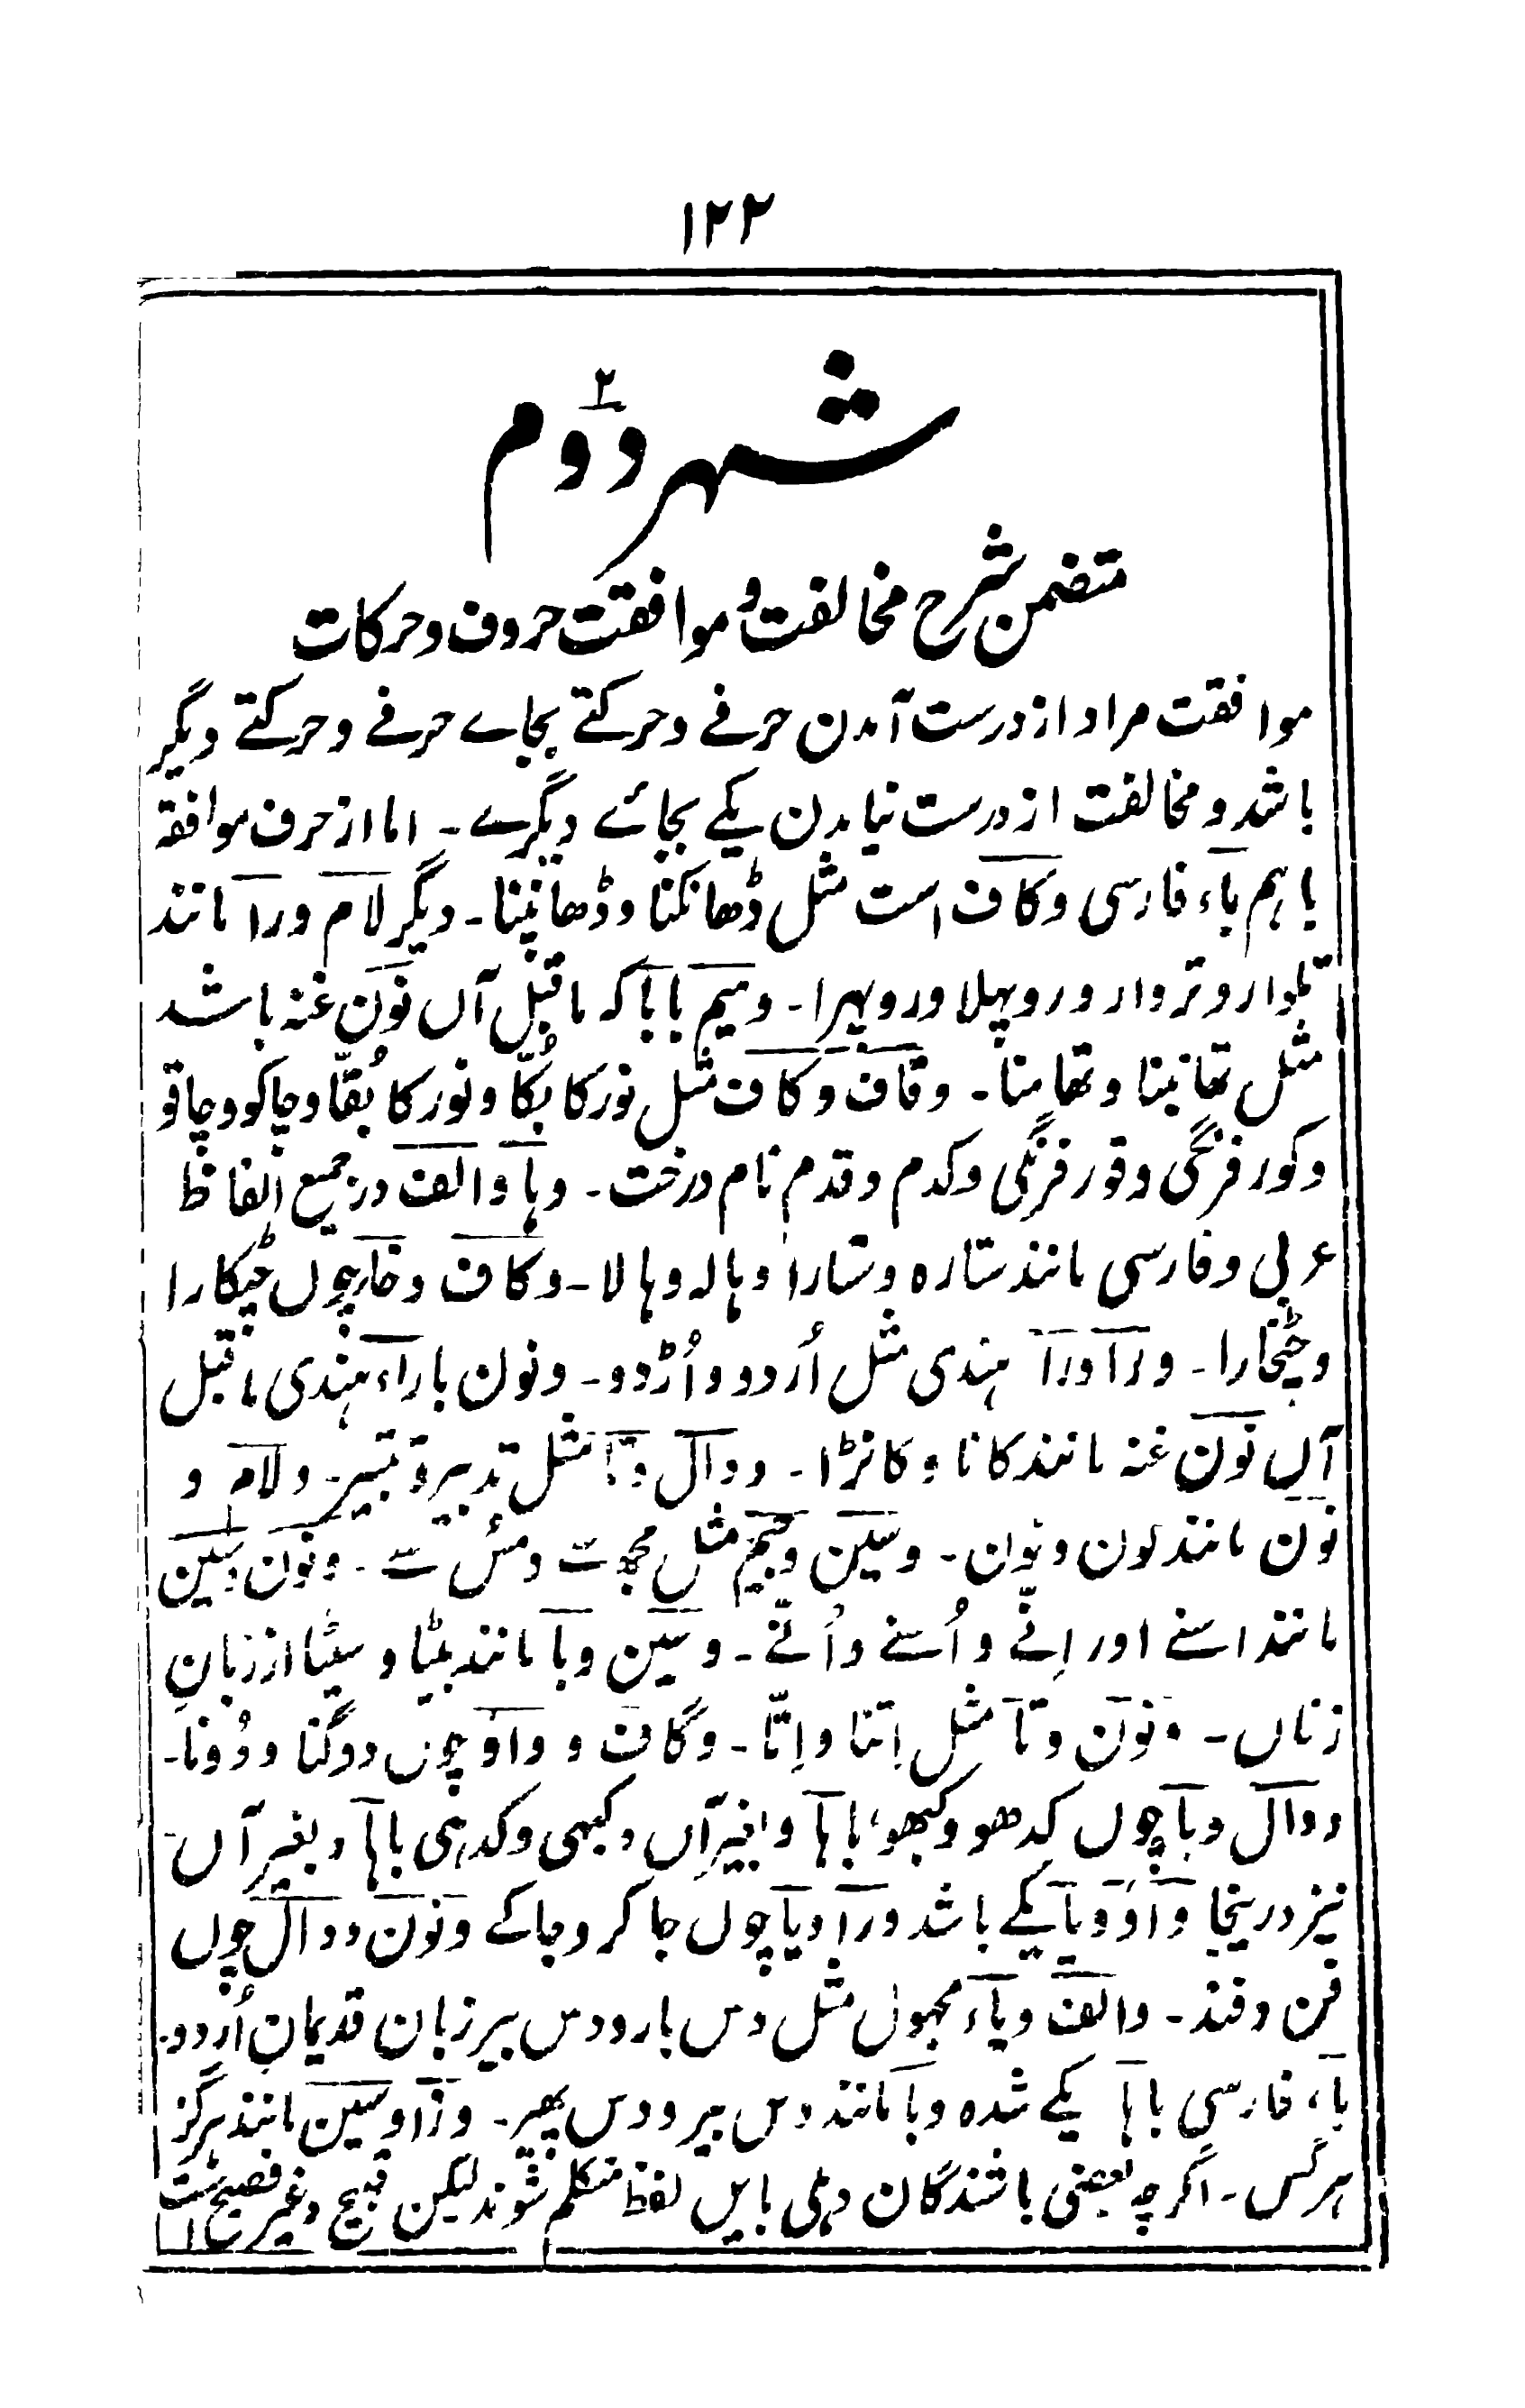 ۱۲۲
شہر دوم
۲
متضمن شرح مخالفت و موافقت حروف و حرکات
موافقت مراد از درست آمدن حرفے و حرکتے بجاے حرفے و حرکتے دیگر
باشد و مخالفت از درست نیامدن یکے بجائے دیگرے۔ اما از حرف موافقہ
باہم باء فارسی و کاف است مثل ڈھانکنا و ڈھانپنا۔ دیگر لام و را مانند
تلوار و تروار و روپہلا و روپہرا۔ و میم با با کہ ماقبل آں نون غنہ باشد
مثل تھانبنا و تھامنا۔ و قاف و کاف مثل نور کا بُکّا و نور کا بُقّا و چاکو و چاقو
و کور فرنگی و قور فرنگی و کدم و قدم نام درخت۔ و ہا و الف در جمیع الفاظ
عربی و فارسی مانند ستارہ و ستارا و ہالہ و ہالا۔ و کاف و خا چوں چٹکارا
و چٹخارا۔ و را و را ہندی مثل اُردو و اُڑدو۔ و نون با راء ہندی ماقبل
آں نون غنہ مانند کانا و کانڑا۔ و دال و تا مثل تدبیر و تتبیر۔ و لام و
نون مانند لون و نون۔ و سین و جیم مثل مجھ سے و مُس سے۔ و نون و سین
مانند اسنے اور اِنّے و اُسنے و اُنّے۔ و سین و با مانند بیٹا و سیٹا از زبانِ
زناں۔ و نون و تا مثل اِتنا و اِتّا۔ و گاف و واو چوں دوگنا و دُونا۔
و دال و با چوں کدھو و کبھو، با ہا و بغیر آں و کبھی و کدہی با ہا و بغیر آں
نیز درینجا واو و یا یکے باشد و را و یا چوں جا کر و جا کے و نون و دال چوں
فن و فند۔ و الف و یاء مجہول مثل دس بار و دس بیر زبان قدیمان اُردو۔
باء فارسی با ہا یکے شدہ و با مانند دس بیر و دس پھیر۔ و زا و سین مانند ہرگز
ہرگس۔ اگرچہ بعضی باشندگان دہلی بایں لفظ متکلم شوند لیکن قبیح و غیر فصیح است